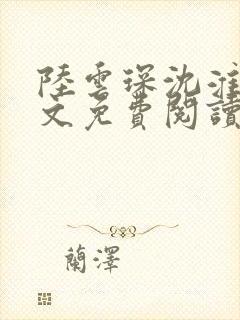 陸雲琛沈淮
文免費閱讀
蘭澤